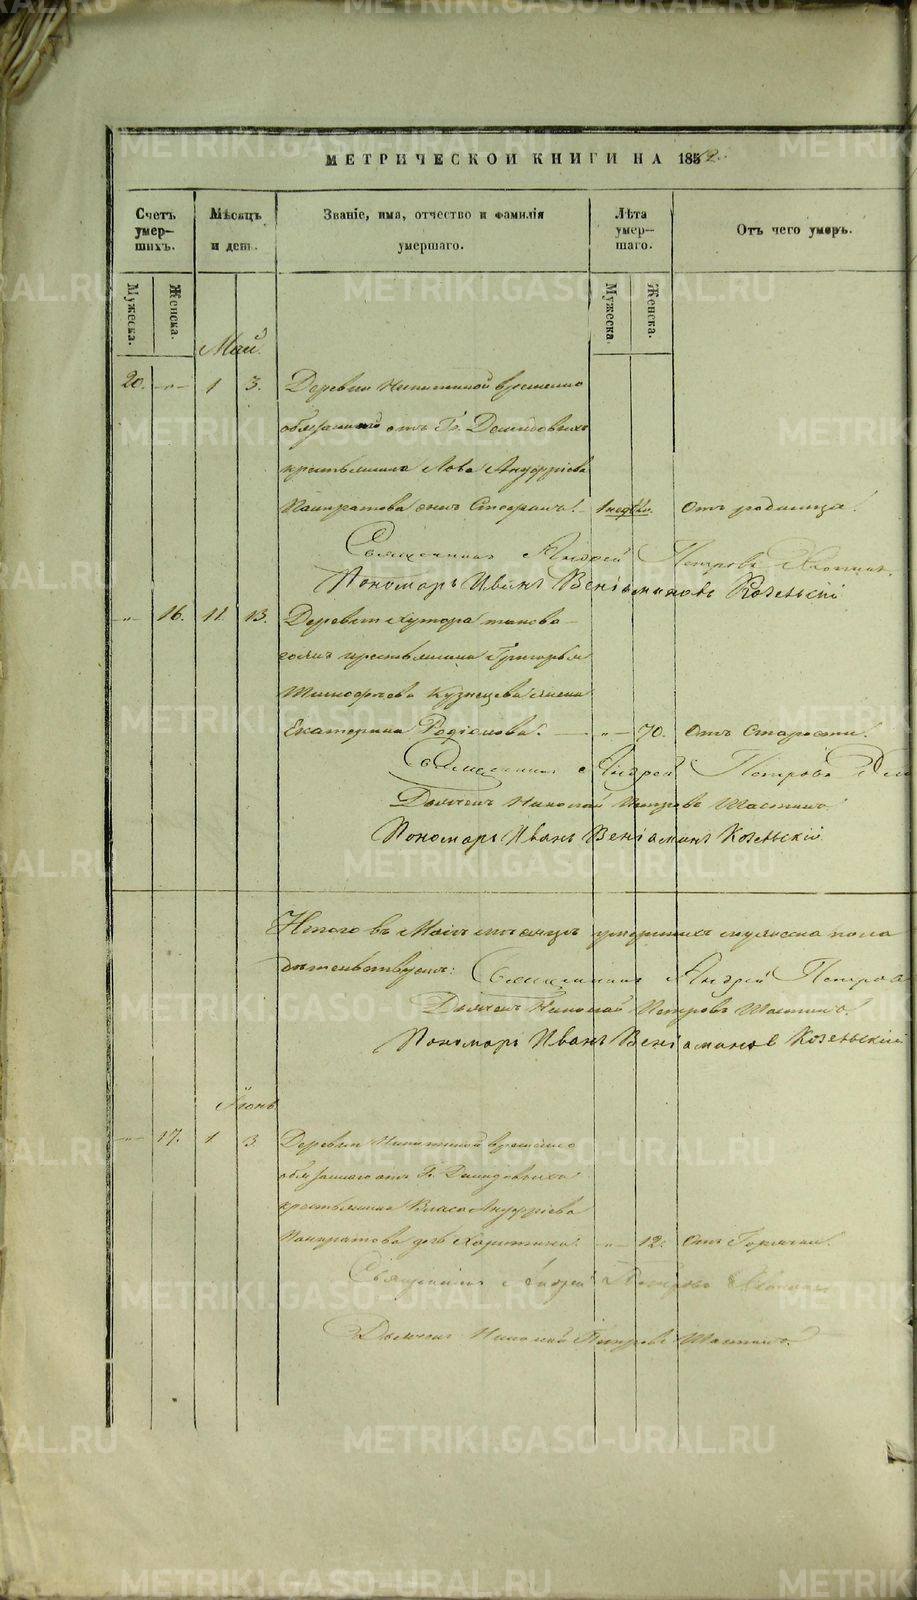 МЕТРИЧЕСКОЙ КНИГИ НА 1862.
Счетъ умер-шихъ.
Мѣсяцъ и день.
Званіе, имя, отчество и фамилія умершаго.
Лѣта умер-шаго.
Отъ чего умеръ.
Мужеска.
Женска.
Мужеска.
Женска.
Май.
20. -"- 1 3. Деревни Никитиной временно
обязаннаго отъ Гг. Демидовыхъ
крестьянина Анүфріева
Панкратова сынъ 1 нед. Отъ родимца.
Священникъ Андрей Петровъ
Пономарь Иванъ Веніаминовъ Козельскій
-"- 16. 11. 13. Деревни Хутора таково-
гожъ крестьянина Григорья
Тимофѣева Кузнецова жена
Екатерина Родіонова. -"- 70. Отъ Старости.
Священникъ Андрей Петровъ
Дьячекъ Николай Петровъ
Пономарь Иванъ Веніаминъ Козельскій
Итого въ Маѣ мѣсяцѣ умершихъ мужеска пола
Священникъ Андрей Петровъ
Дьячекъ Николай Петровъ
Пономарь Иванъ Веніаминов Козельскій
Іюнь
-"- 17. 1 3 Деревни Никитиной временно
обязаннаго отъ Гг. Демидовыхъ
крестьянина Власа Ануфріева
Панкратова дочь Харитина. -"- 12. Отъ Горячки.
Священникъ Андрей Петровъ
Дьячекъ Николай Петровъ
METRIKI.GASO-URAL.RU